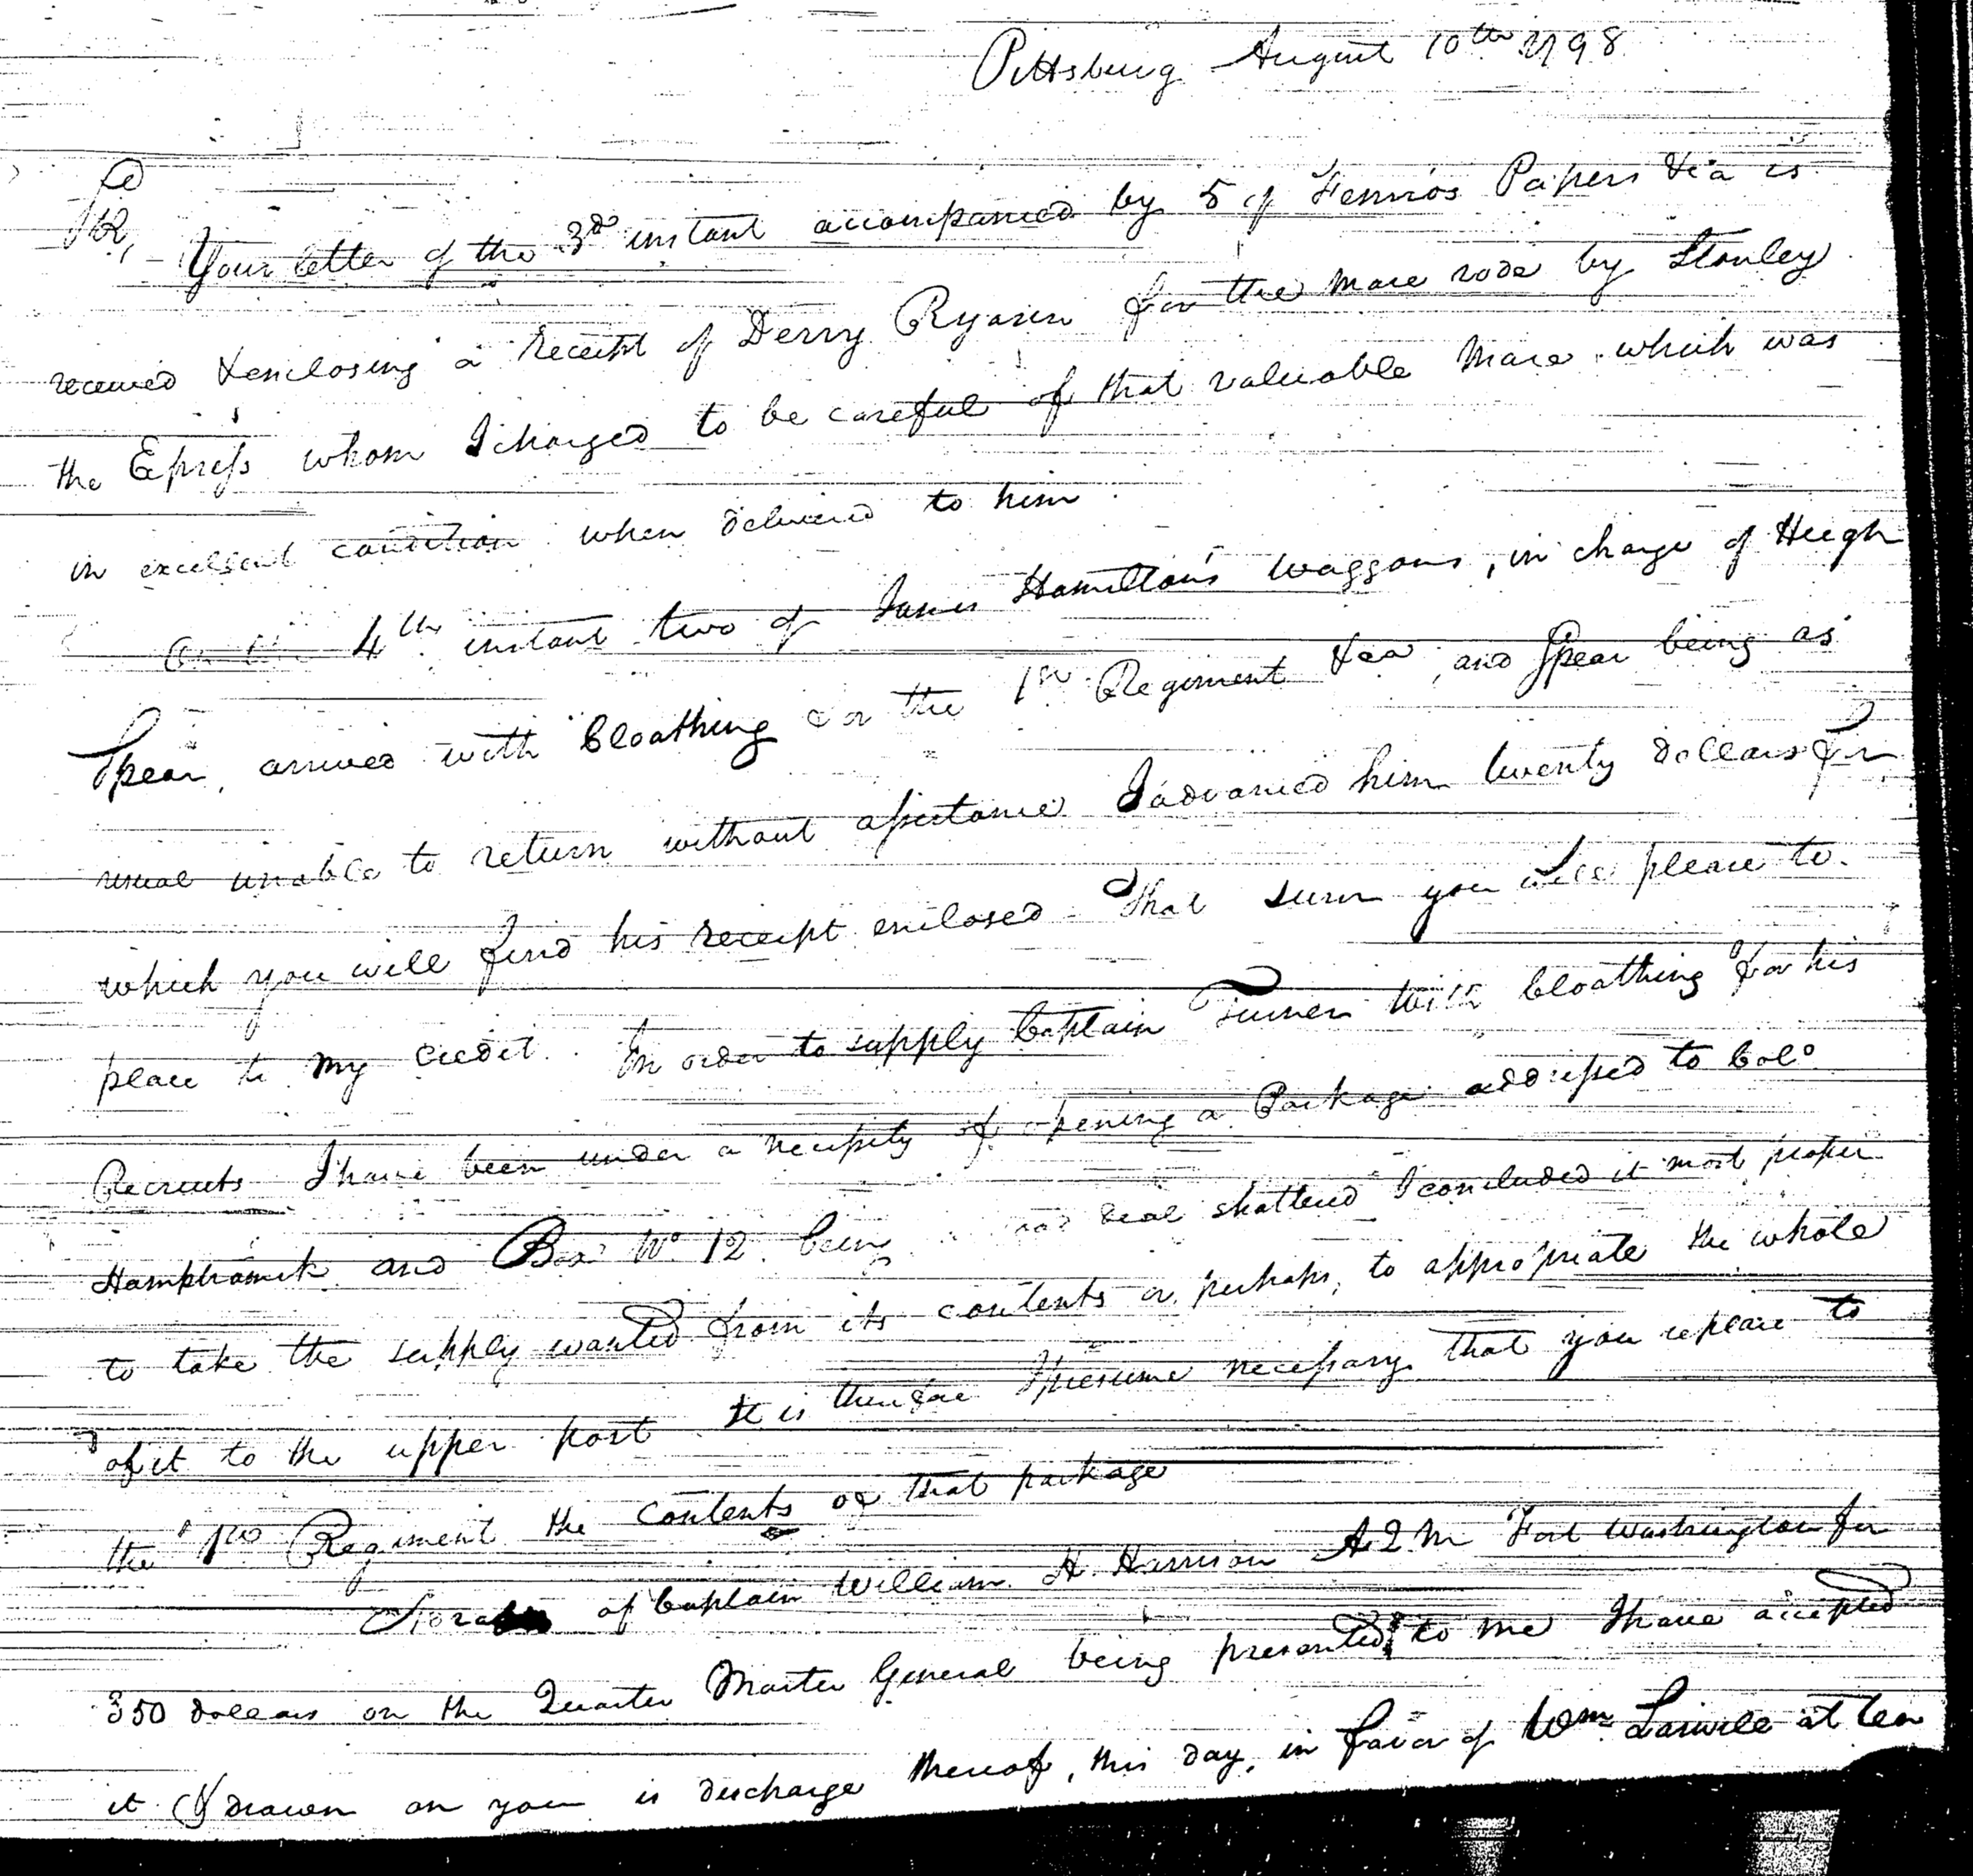 Pittsburg August 10th 1798
Sir,
Your letter of the 3d instant accompanied by 5 of Fennos Papers &ca is
received & enclosing a receipt of Derry Ryann for the mare rode by Stanley
the Express whom I charged to be careful of that valuable Mare which was
in excellent condition when delivered to him.
On the 4th instant two of James Hamilton's waggons, in charge of Hugh
Spear, arrived with Cloathing for the 1st Regiment &ca, and Spear being as
usual unable to return without assistance I advanced him twenty dollars for
which you will find his receipt enclosed - That sum you will please to
place to my credit. In order to supply Captain Turner with Cloathing for his
Recruits I have been under a necessity of opening a Package addressed to Colo
Hamphramck and Box No 12 being deal shattered I concluded it most proper
to take the supply wanted from its contents or perhaps, to appropriate the whole
of it to the upper post It is therefore I presume necessary that you replace to
the 1st Regiment the contents of that package
of Captain William H. Harrison A Q M Fort Washington for
350 dollars on the Quarter Master General being presented to me I have accepted
it & drawn on you in discharge thereof, this day, in favor of Wm at ten